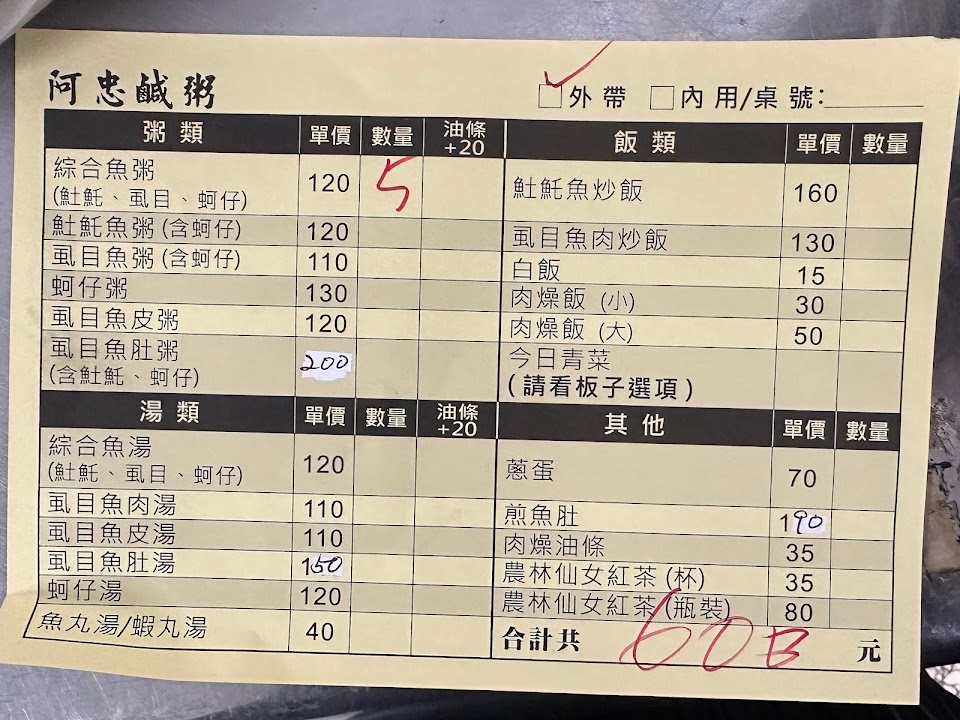 阿忠鹹粥
外帶 內用/桌號:
粥類 單價 數量 油條+20
綜合魚粥 120 5
(𩵚魠、虱目、蚵仔)
𩵚魠魚粥(含蚵仔) 120
虱目魚粥(含蚵仔) 110
蚵仔粥 130
虱目魚皮粥 120
虱目魚肚粥 200
(含𩵚魠、蚵仔)
湯類 單價 數量 油條+20
綜合魚湯 120
(𩵚魠、虱目、蚵仔)
虱目魚肉湯 110
虱目魚皮湯 110
虱目魚肚湯 150
蚵仔湯 120
魚丸湯/蝦丸湯 40
飯類 單價 數量
𩵚魠魚炒飯 160
虱目魚肉炒飯 130
白飯 15
肉燥飯 (小) 30
肉燥飯 (大) 50
今日青菜
(請看板子選項)
其他 單價 數量
蔥蛋 70
煎魚肚 190
肉燥油條 35
農林仙女紅茶(杯) 35
農林仙女紅茶(瓶裝) 80
合計共 600 元